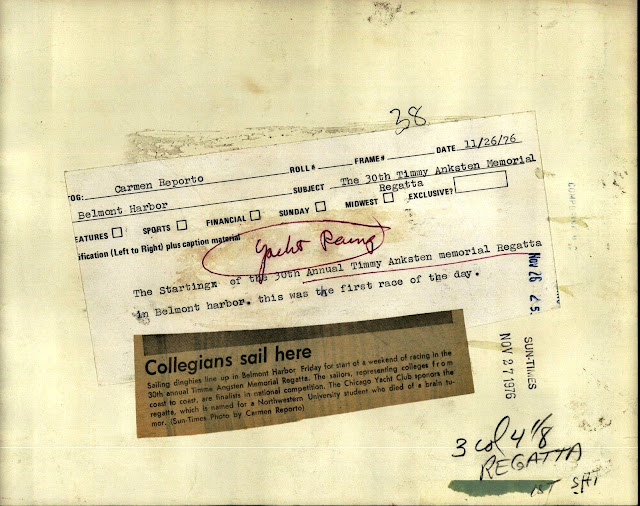 38
OG: Carmen Reporto ROLL # FRAME# DATE 11/26/76
Belmont Harbor SUBJECT The 30th Timmy Anksten Memorial
Regatta
EATURES SPORTS FINANCIAL SUNDAY MIDWEST EXCLUSIVE?
ification (Left to Right) plus caption material
Yacht Racing
The Startingx of the 30th Annual Timmy Anksten memorial Regatta
in Belmont harbor. this was the first race of the day.
Nov 26
SUN-TIMES
NOV 27 1976
Collegians sail here
Sailing dinghies line up in Belmont Harbor Friday for start of a weekend of racing in the
30th annual Timme Angsten Memorial Regatta. The sailors, representing colleges from
coast to coast, are finalists in national competition. The Chicago Yacht Club sponsors the
regatta, which is named for a Northwestern University student who died of a brain tu-
mor. (Sun-Times Photo by Carmen Reporto)
3 col 4 1/8
REGATTA
1ST SAT